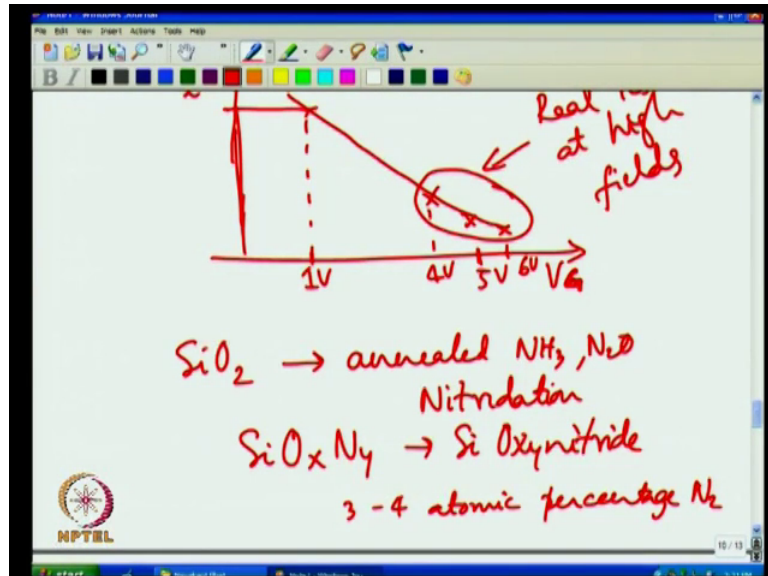 File Edit View Insert Actions Tools Help
B I
Real
at high
fields
1V 4V 5V 6V VG
SiO2 → annealed NH3, N2O
Nitridation
SiOxNy → Si Oxynitride
3 - 4 atomic percentage N2
NPTEL
10 / 13
start